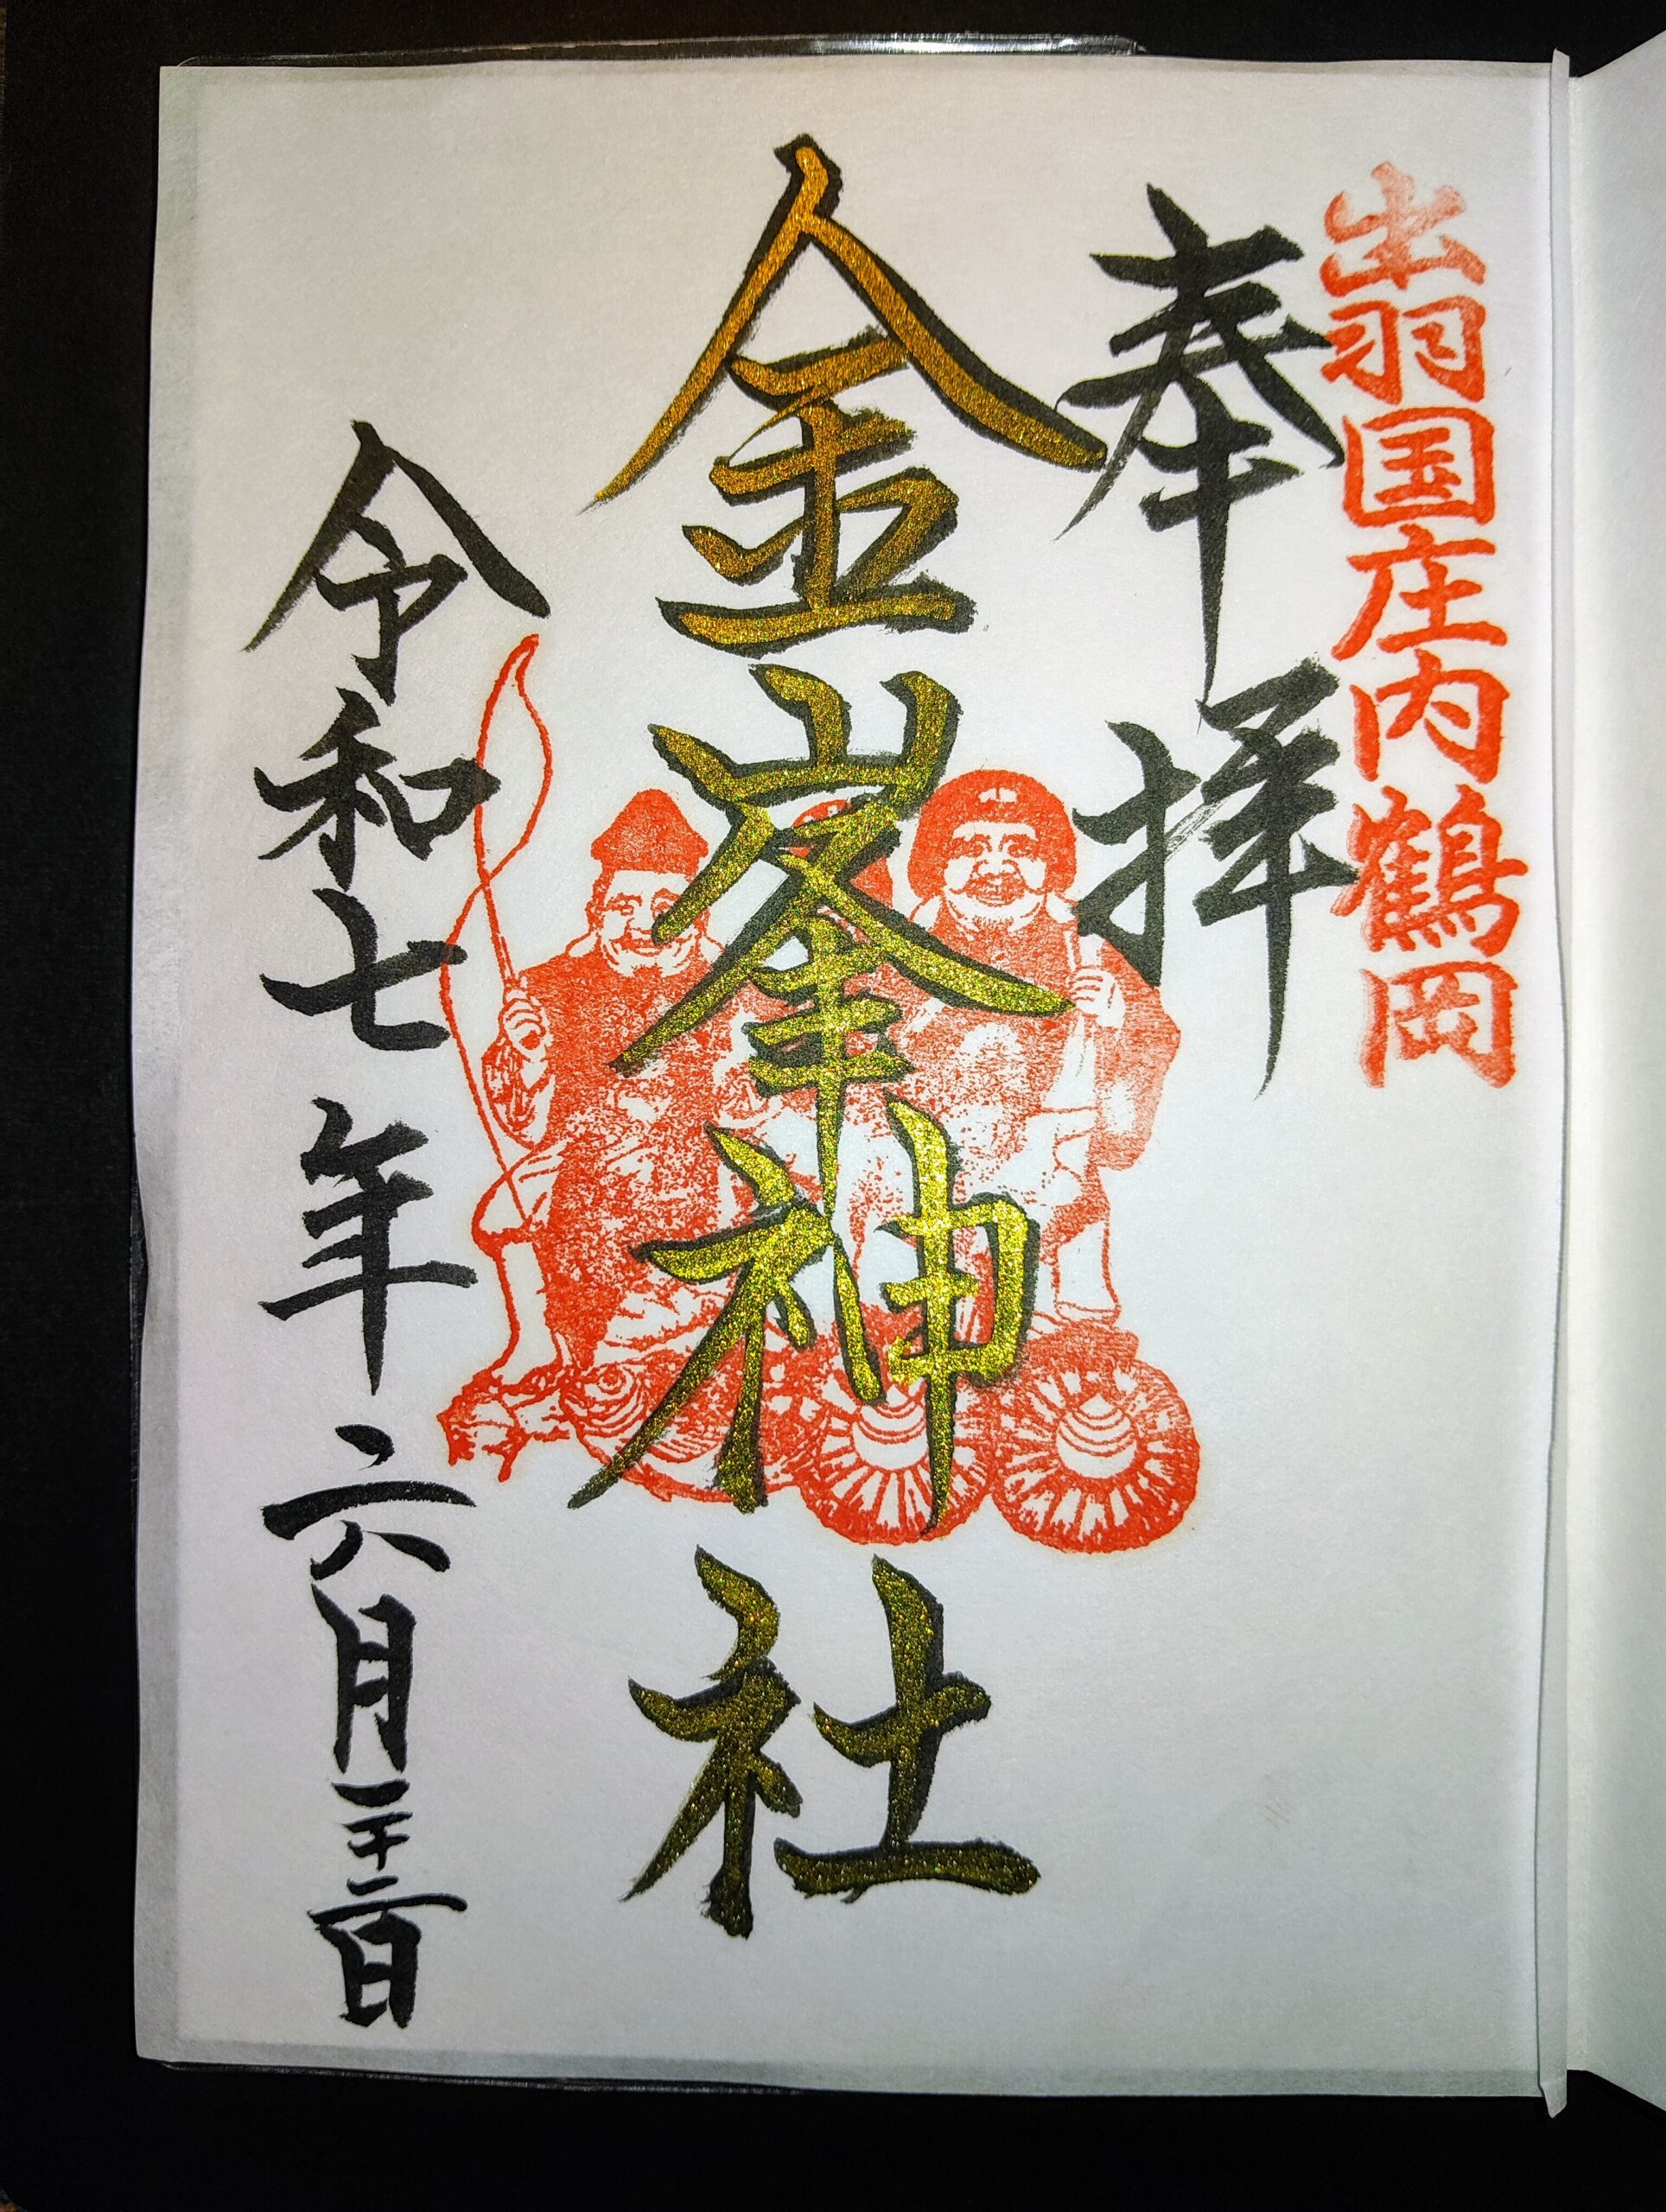 出羽国庄内鶴岡
奉拝
金峯神社
令和七年六月二十二日